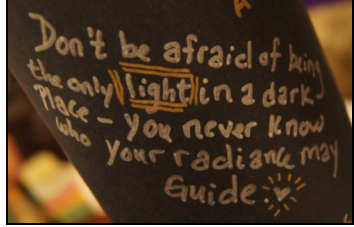 Don't be afraid of being
the only light in a dark
Place - you never know
who your radiance may
Guide